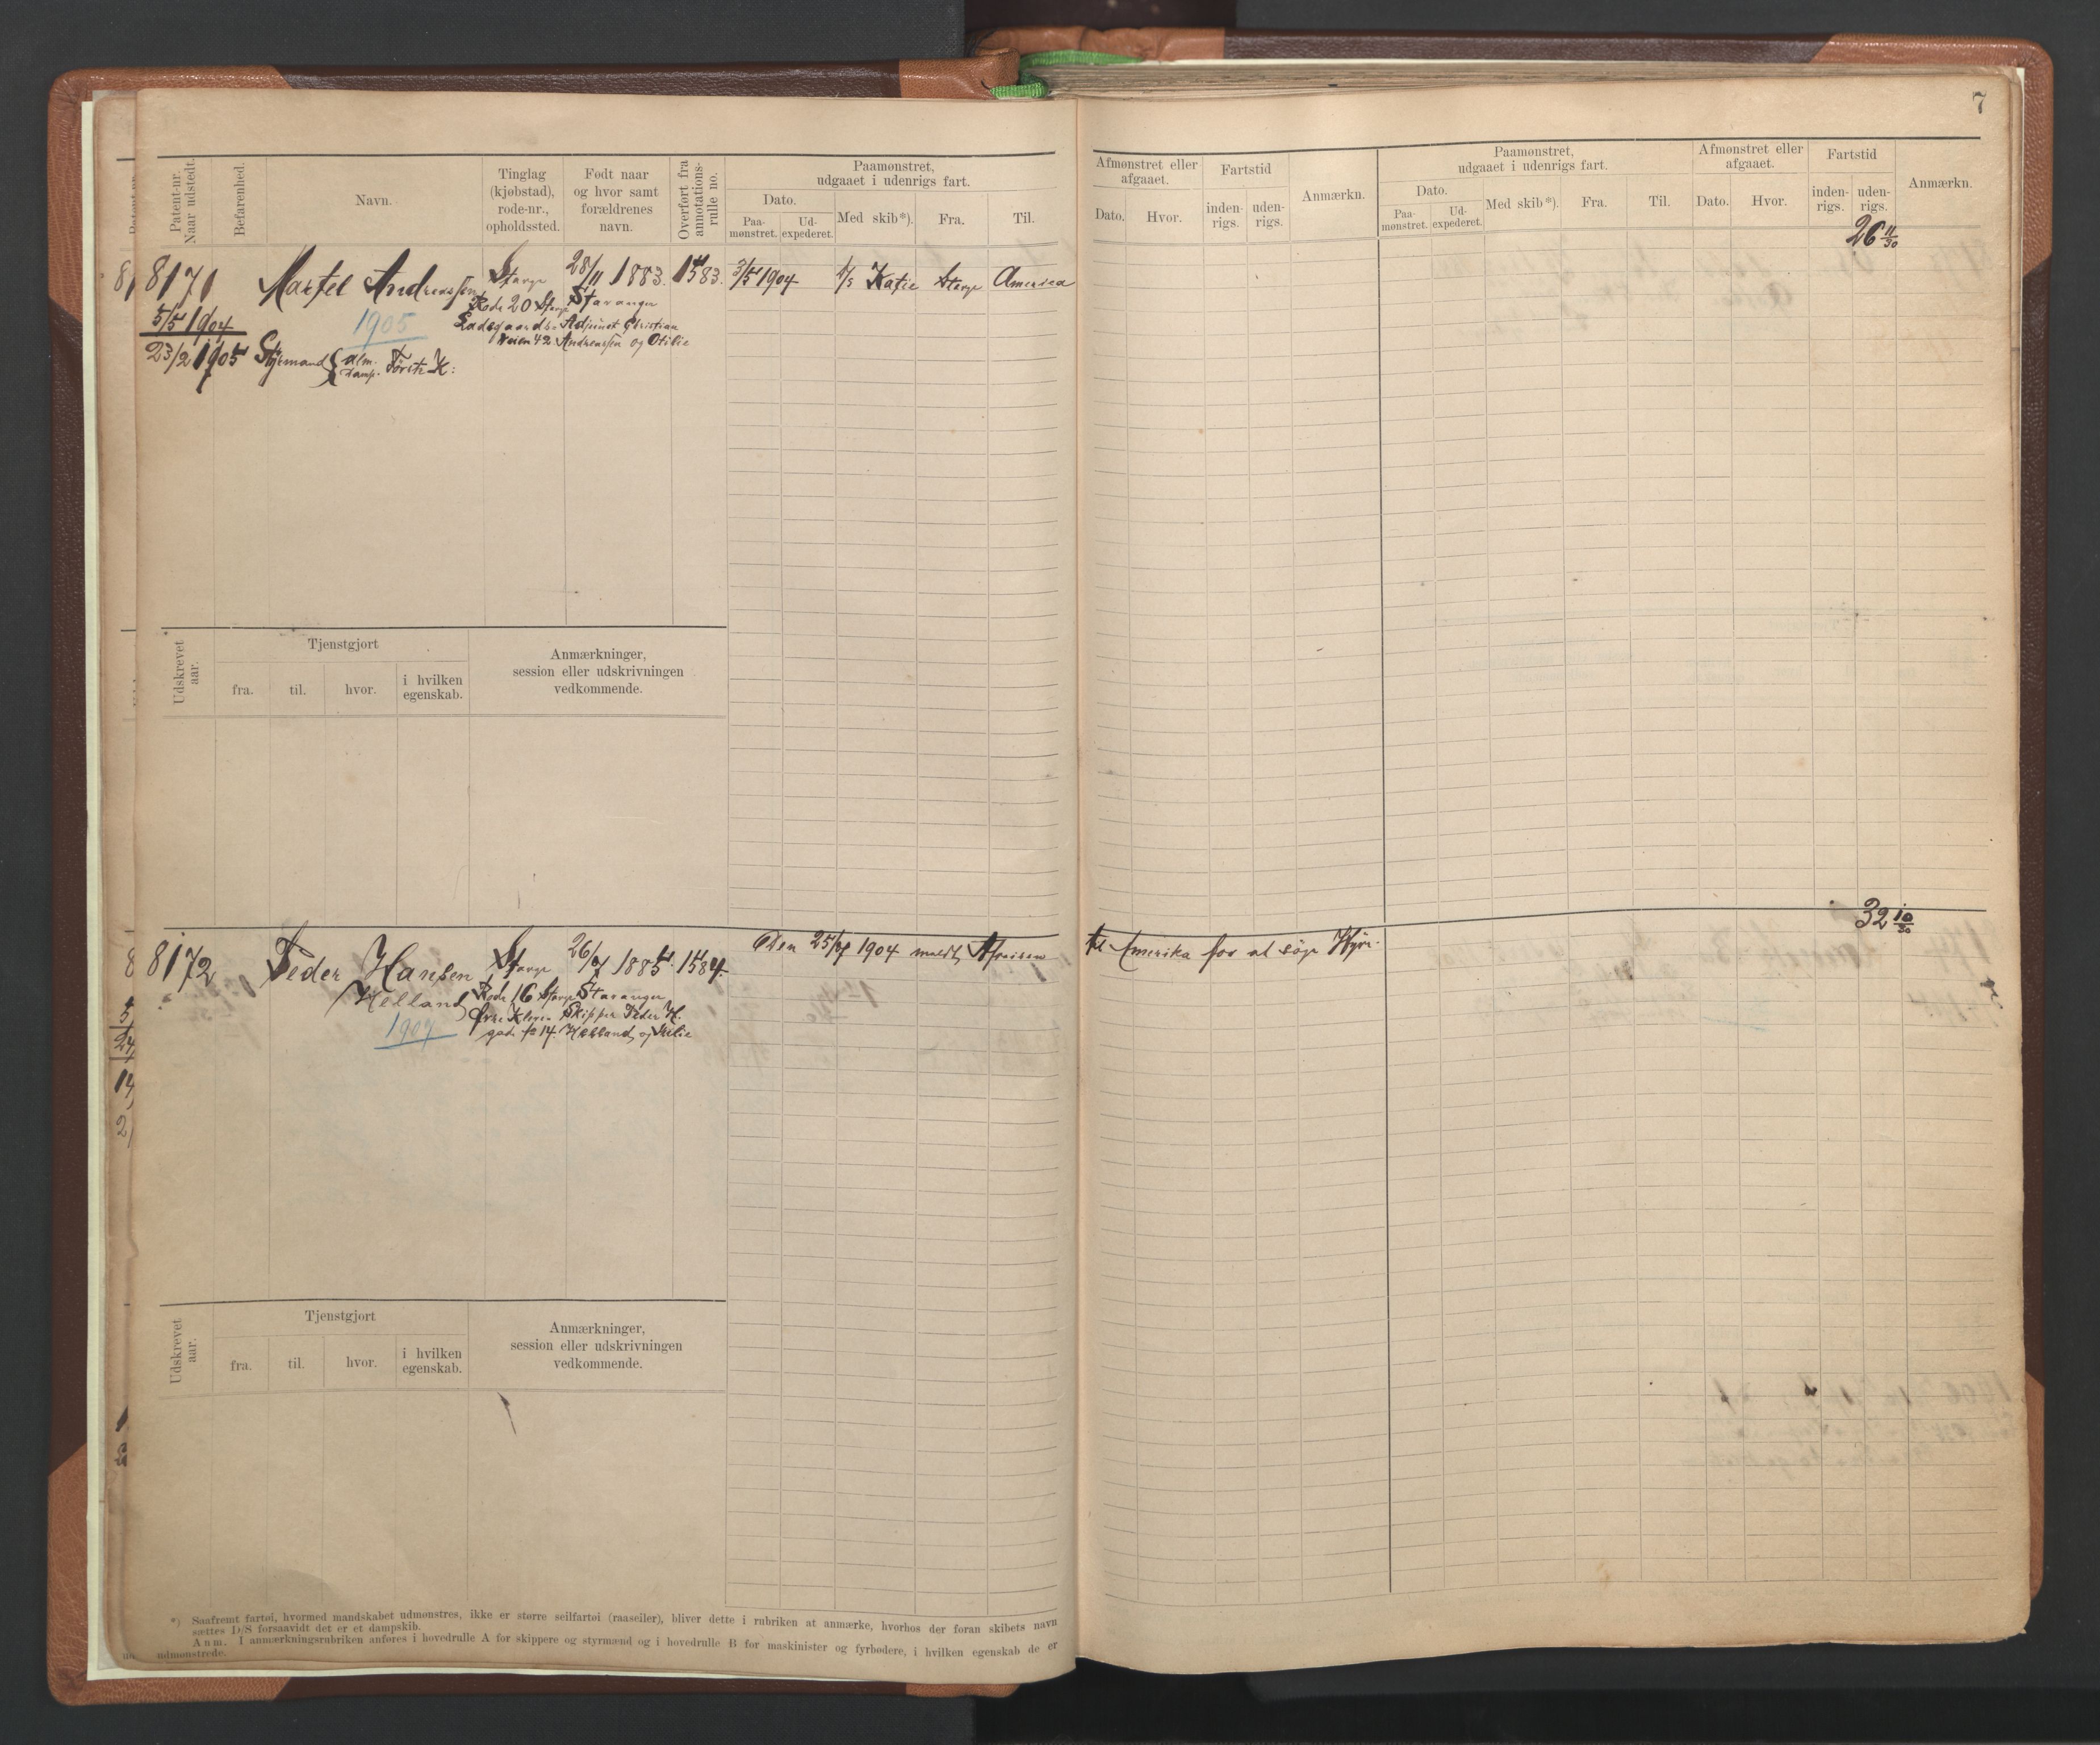 7
Patent-nr. Naar udstedt.
Befarenhed.
Navn.
Tinglag (kjøbstad), rode-nr., opholdssted.
Født naar og hvor samt forældrenes navn.
Overført fra annotations-rulle no.
Paamønstret, udgaaet i udenrigs fart.
Dato.
Paa-mønstret.
Ud-expederet.
Med skib*).
Fra.
Til.
Afmønstret eller afgaaet.
Dato.
Hvor.
Fartstid
inden-rigs.
uden-rigs.
Anmærkn.
Paamønstret, udgaaet i udenrigs fart.
Dato.
Paa-mønstret.
Ud-expederet.
Med skib*).
Fra.
Til.
Afmønstret eller afgaaet.
Dato.
Hvor.
Fartstid
inden-rigs.
uden-rigs.
Anmærkn.
26 11/30
8171 Andreassen Stavgr 28/11 1883. 1583. 3/5 1904 Katie Stavgr America
5/5 1904 1905 Rode 20 Stavgr Stavanger
Ladegaards- Adjunct Christian
veien 42 Andreassen og Otilie
23/2 1905 Styrmand { alm. damp. Første K:
Udskrevet aar.
Tjenstgjort
fra.
til.
hvor.
i hvilken egenskab.
Anmærkninger, session eller udskrivningen vedkommende.
32 10/30
8172 Peder Hansen Stavgr 1885. 1584. Den 1904 meldt Afreisen til Amerika for at søge Hyre.
Helland Rode 16 Stavgr Stavanger
1907 Skipper Peder H.
14. Helland og
Udskrevet aar.
Tjenstgjort
fra.
til.
hvor.
i hvilken egenskab.
Anmærkninger, session eller udskrivningen vedkommende.
*) Saafremt fartøi, hvormed mandskabet udmønstres, ikke er større seilfartøi (raaseiler), bliver dette i rubriken at anmærke, hvorhos der foran skibets navn
sættes D/S forsaavidt det er et dampskib.
Anm. I anmærkningsrubriken anføres i hovedrulle A for skippere og styrmænd og i hovedrulle B for maskinister og fyrbødere, i hvilken egenskab de er
udmønstrede.